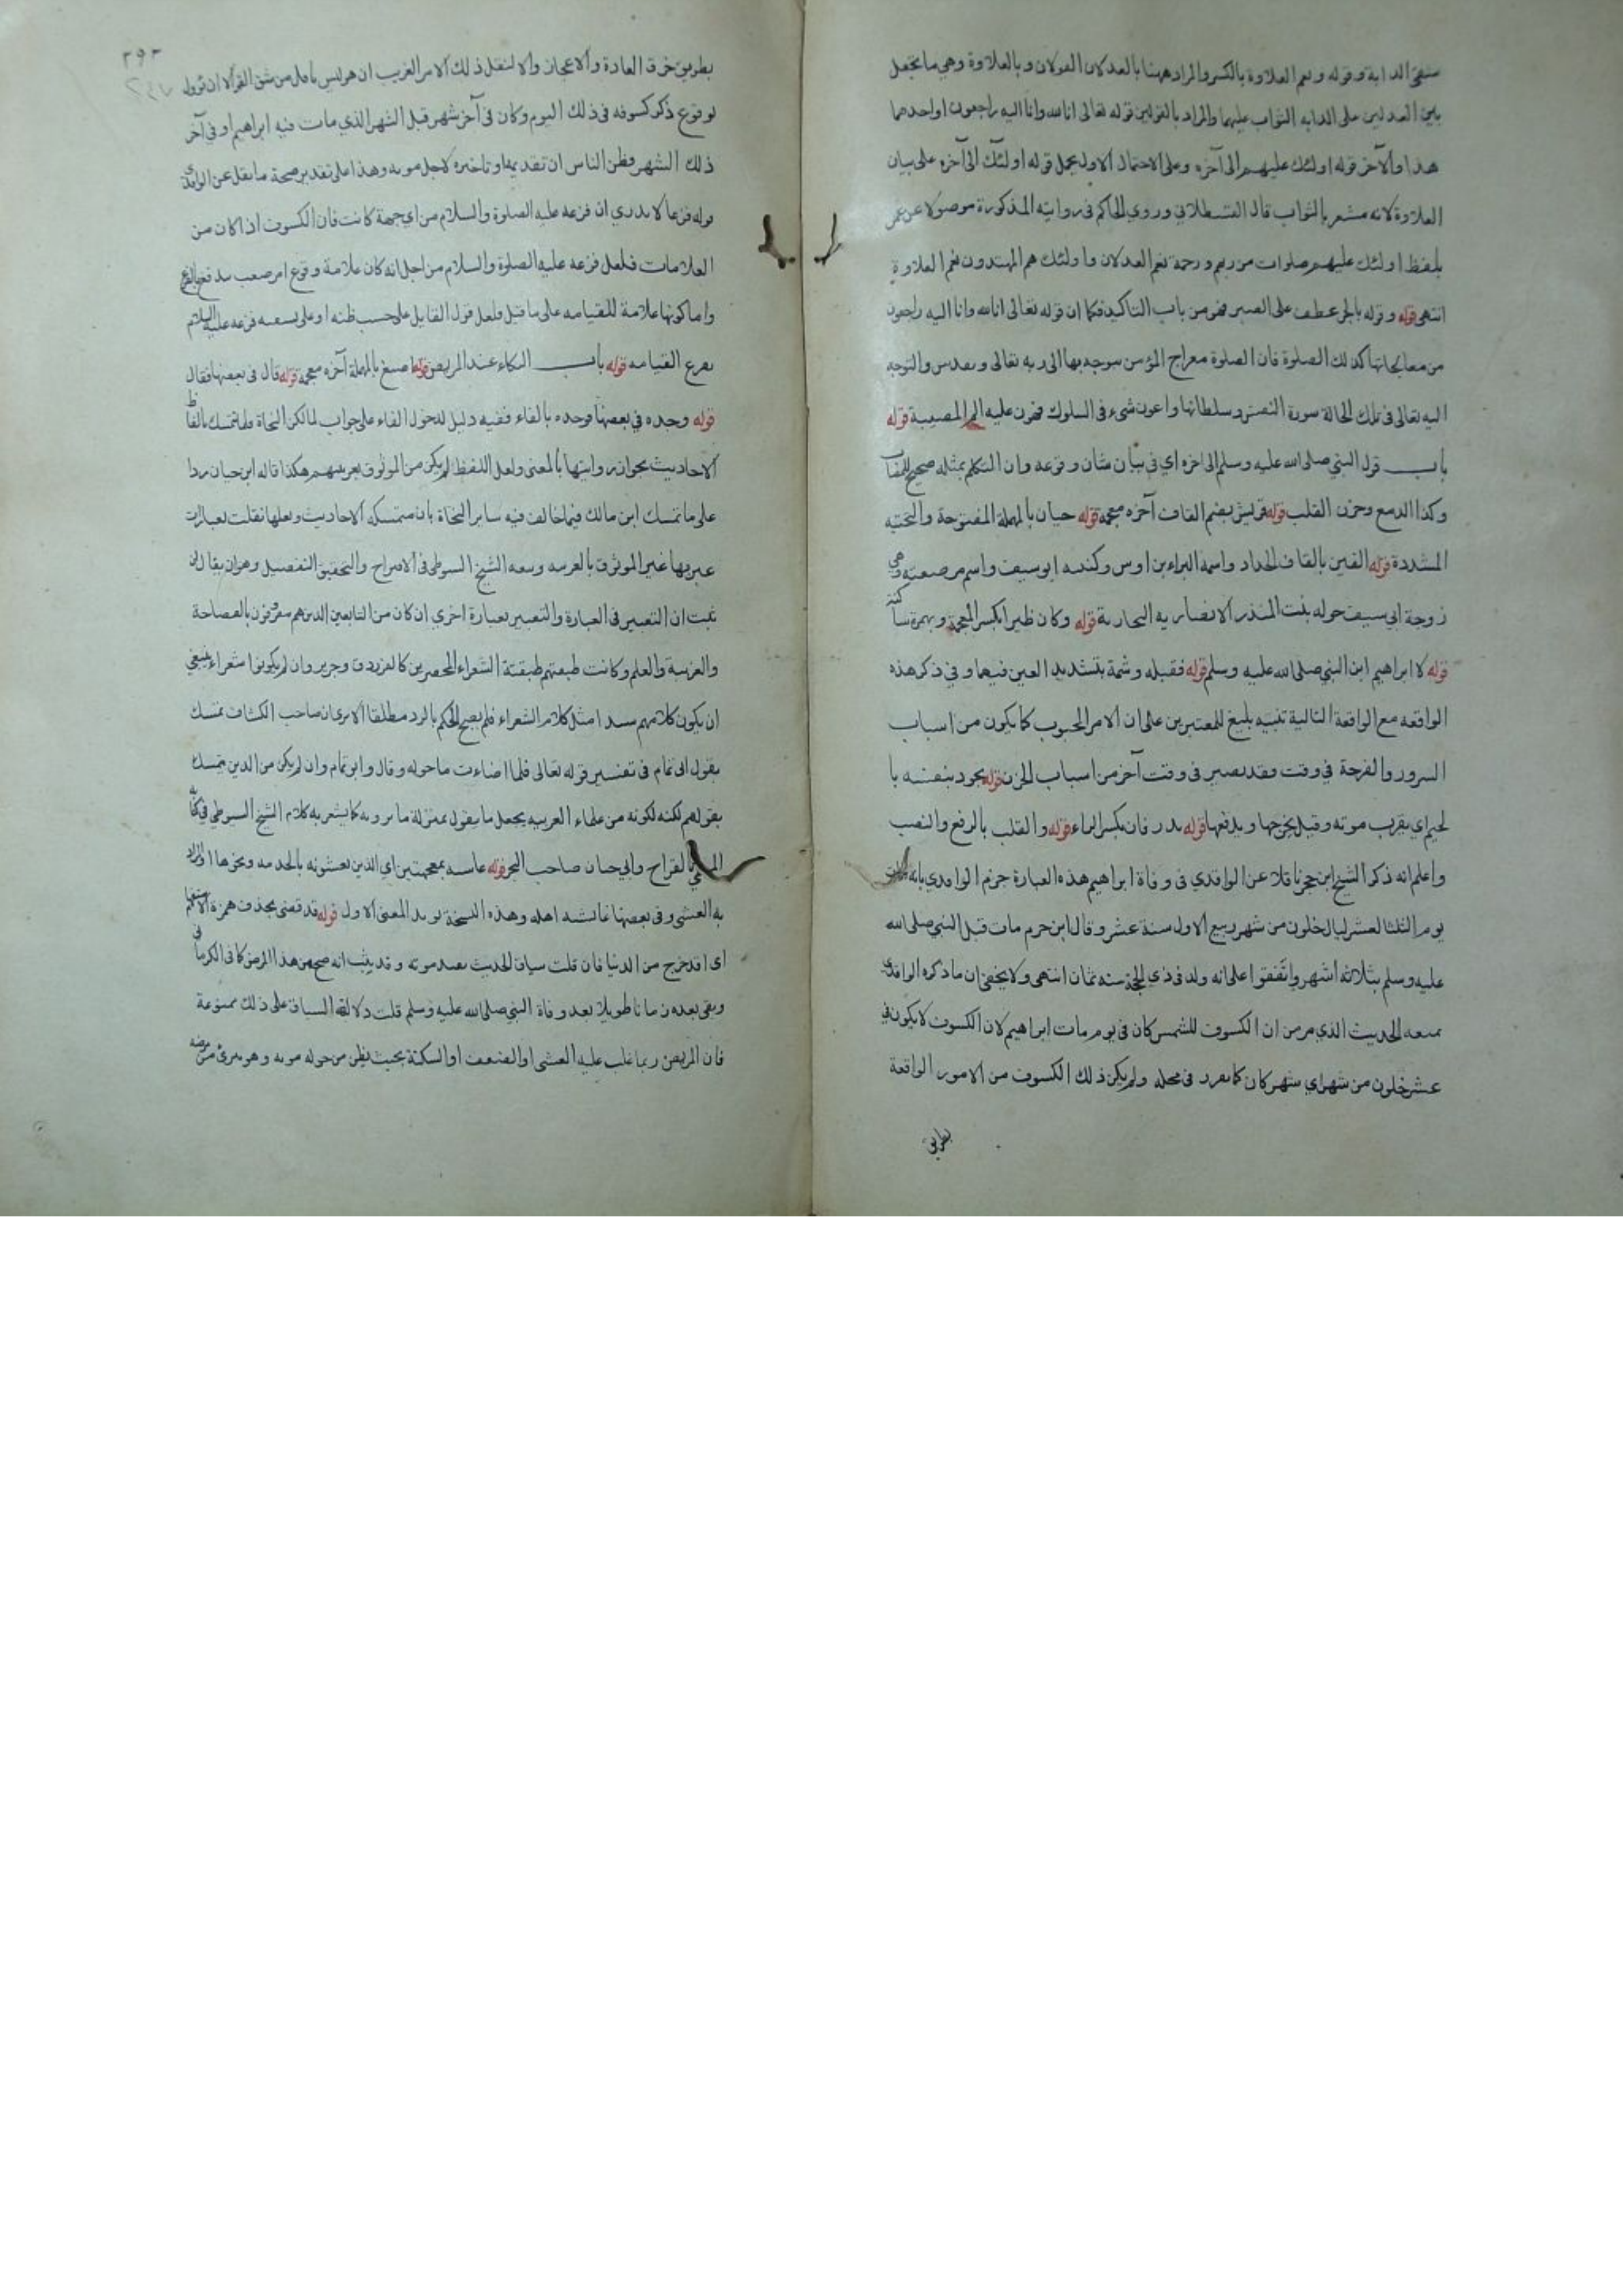 شقي الدابة وقوله ونعم العلاوة بالكسر والمراد ههنا بالعدلان القولان وبالعلاوة وهي ما يجعل
بين العدلين على الدابه الثواب عليهما والمراد بالقولين قوله تعالى انا لله وانا اليه راجعون او احدهما
هذا والآخر قوله اولئك عليهم الى آخره وعلى الاحتمال الاول يحمل قوله اولئك الى آخره على بيان
العلاوة لانه مشعر بالثواب قال القسطلاني وروي الحاكم في روايته المذكورة موصولا عن عمر
بلفظ اولئك عليهم صلوات من ربهم ورحمة نعم العدلان واولئك هم المهتدون نعم العلاوة
انتهى قوله وقوله بالجر عطف على الصبر فهو من باب التاكيد فكما ان قوله تعالى انا لله وانا اليه راجعون
من معالجاتها كذلك الصلوة فان الصلوة معراج المؤمن يتوجه بها الى ربه تعالى وتقدس والتوجه
اليه تعالى في تلك الحالة سورة النفس وسلطانها واعون شيء في السلوك فهون عليه الم المصيبة قوله
باب قول النبي صلى الله عليه وسلم الى اخره اي في بيان شان وقوعه وان التكلم بمثله صحيح
وكذا الدمع وحزن القلب قوله قريش بضم القاف آخره معجمة قوله حيان بالمهملة المفتوحة والتحتيه
المشددة قوله القين بالقاف الحداد واسمه البراء بن اوس وكنيته ابو سيف واسم مرضعته وهي
زوجة ابي سيف خوله بنت المنذر الانصاريه النجارية قوله وكان ظيرا بكسر المعجمة وبهمزة ساكنة
قوله لابراهيم ابن النبي صلى الله عليه وسلم قوله فقبله وشمه بتشديد العين فيهما وفي ذكر هذه
الواقعه مع الواقعة التالية تنبيه بليغ للمعتبرين على ان الامر المحبوب كما يكون من اسباب
السرور والفرحة في وقت وقد يصير في وقت آخر من اسباب الحزن قوله يجود بنفسه با
لجيم اي يقرب موته وقيل يخرجها ويدفعها قوله يدرفان بكسر الراء قوله والقلب بالرفع والنصب
واعلم انه ذكر الشيخ ابن حجر ناقلا عن الواقدي في وفاة ابراهيم هذه العبارة جزم الواقدي بانه مات
يوم الثلثا لعشر ليال خلون من شهر ربيع الاول سنة عشر وقال ابن حزم مات قبل النبي صلى الله
عليه وسلم بثلاثة اشهر واتفقوا على انه ولد في ذي الحجة سنه ثمان انتهى ولا يخفى ان ما ذكره الواقدي
يمنعه الحديث الذي مر من ان الكسوف للشمس كان في يوم مات ابراهيم لان الكسوف لا يكون في
عشر خلون من شهر اي شهر كان كما تقرر في محله ولم يكن ذلك الكسوف من الامور الواقعة
بطريق
٢٩٣
بطريق خرق العادة والاعجاز والا لنقل ذلك الامر الغريب اذ هو ليس باقل من شق القمر الا ان يؤول
لوقوع ذكر كسوفه في ذلك اليوم وكان في آخر شهر قبل الشهر الذي مات فيه ابراهيم او في آخر
ذلك الشهر وظن الناس ان تقديمه او تاخيره لاجل موته وهذا على تقدير صحة ما نقل عن الواقدي
قوله فزعا لا يدري ان فزعه عليه الصلوة والسلام من اي جهة كانت فان الكسوف اذا كان من
العلامات فلعل فزعه عليه الصلوة والسلام من اجل انه كان علامة وقوع امر صعب
واما كونها علامة للقيامه على ما قيل فلعل قول القايل على حسب ظنه او على فزعه عليه السلام
القيامه قوله باب البكاء عند المريض قوله اصبغ بالمهملة آخره معجمة قوله قال في بعضها فقال
قوله وجده في بعضها فوجده بالفاء ففيه دليل لدخول الفاء على جواب لما لكن النحاة ما تمسك بالفاظ
الاحاديث بجواز روايتها بالمعنى ولعل اللفظ لم يكن من الموثوق بعربيتهم هكذا قاله ابن حيان ردا
على ما تمسك ابن مالك فيما خالف فيه ساير النحاة بان متمسكه الاحاديث ولعلها نقلت بعبارات
عبر بها غير الموثوق بالعربيه وتبعه الشيخ السيوطي في الاقتراح والتحقيق التفصيل وهو ان يقال ان
ثبت ان التغيير في العبارة والتعبير بعبارة اخرى ان كان من التابعين الذين هم معروفون بالفصاحة
والعربية والعلم وكانت طبقتهم طبقة الشعراء المحضرمين كالفرزدق وجرير وان لم يكونوا شعراء ينبغي
ان يكون كلامهم سندا مثل كلام الشعراء فلم يصح الحكم بالرد مطلقا الا يرى ان صاحب الكشاف تمسك
بقول ابي تمام في تفسير قوله تعالى فلما اضاءت ما حوله وقال وابو تمام وان لم يكن من الذين يتمسك
بقولهم لكنه لكونه من علماء العربيه يجعل ما يقول بمنزلة ما يرويه كما يشعر به كلام الشيخ السيوطي في كتابه
المسمى بالاقتراح وابي حيان صاحب البحر قوله غاشيه بمعجمتين اي الذين يغشونه بالخدمه ونحوها او المراد
به الغشي وفي بعضها غاشيه اهله وهذه النسخة تويد المعنى الاول قوله قد قضى بحذف همزة الاستفهام
اي اقد خرج من الدنيا فان قلت سياق الحديث بعد موته وقد يثبت انه صح من هذا المرض كما في الكرماني
وبقي بعده زمانا طويلا بعد وفاة النبي صلى الله عليه وسلم قلت دلالة السياق على ذلك ممنوعة
فان المريض ربما غلب عليه الغشي او الضعف او السكتة بحيث يظن من حوله موته وهو بريء من مرضه